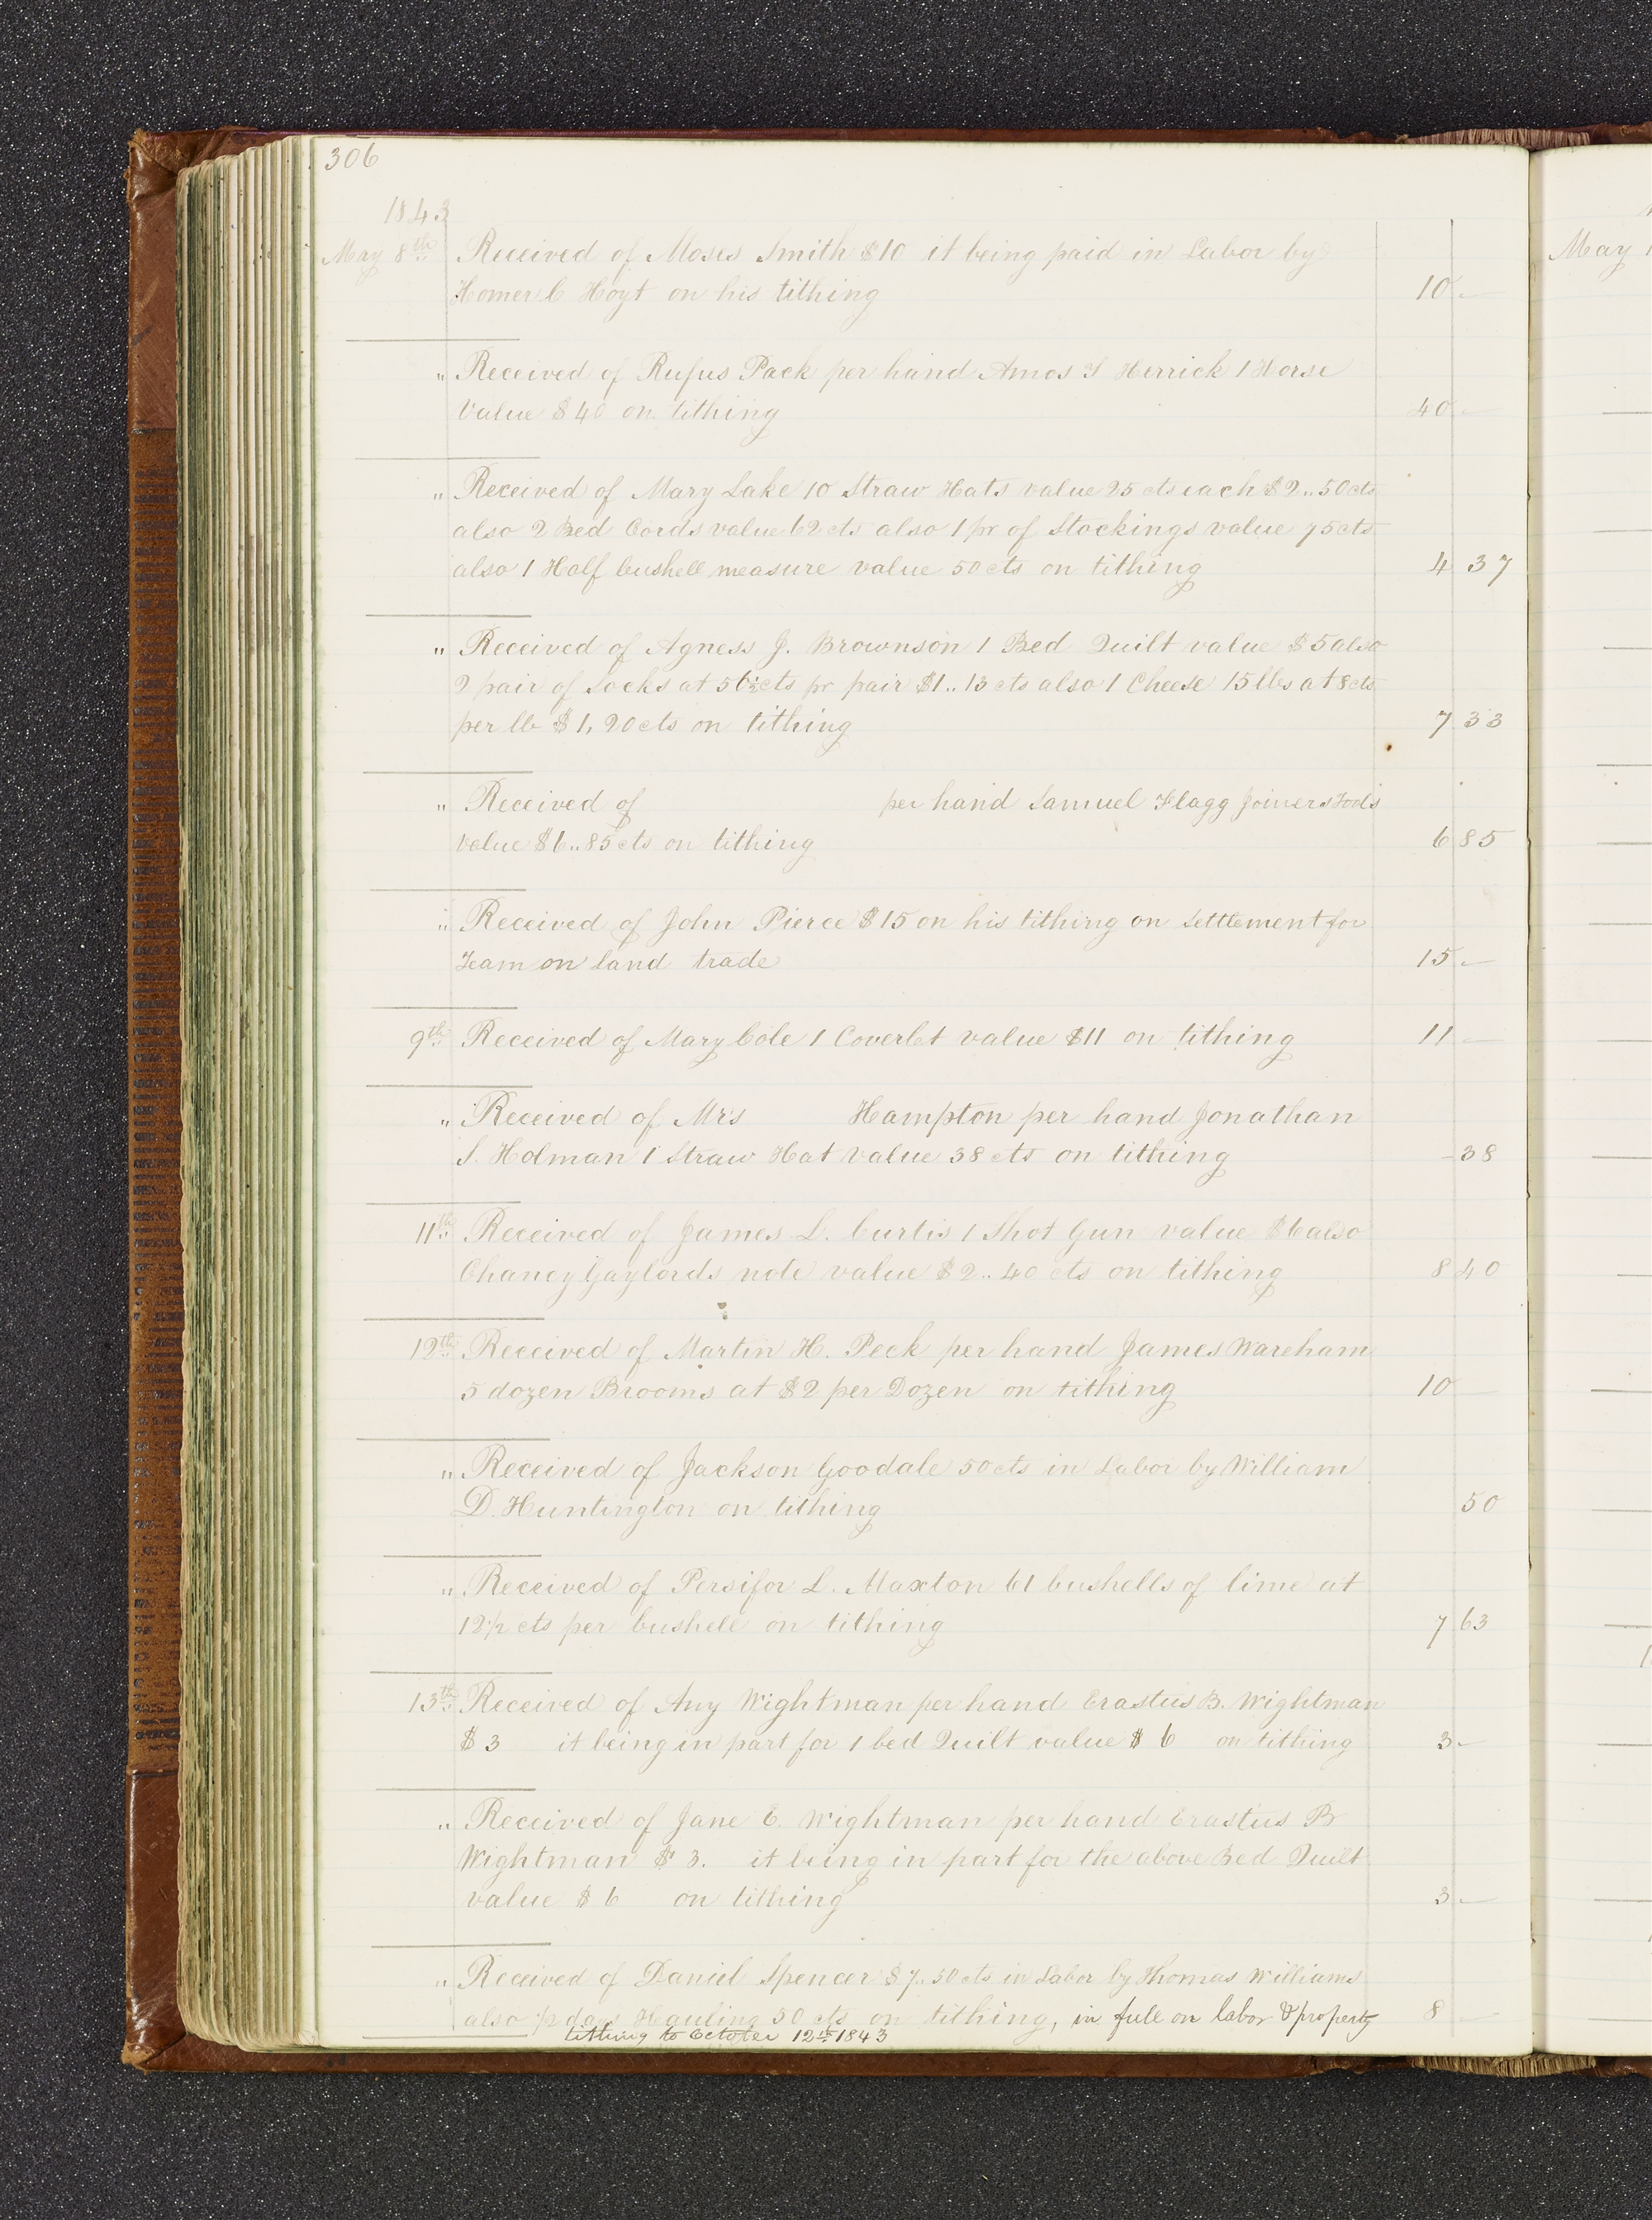 306
1843
May 8th Received of Moses Smith $10 it being paid in Labor by
Homer C Hoyt on his tithing 10 –
" Received of Rufus Pack per hand Amos S Herrick 1 Horse
Value $40 on tithing 40 –
" Received of Mary Lake 10 Straw Hats value 25 cts each $2..50 cts
also 2 Bed Cords value 62 cts also 1 pr of Stockings value 75 cts
also 1 Half bushell measure value 50 cts on tithing 4 37
" Received of Agness J. Brownson 1 Bed Quilt value $5 also
2 pair of Socks at 56½ cts pr pair $1..13 cts also 1 Cheese 15 lbs at 8 cts
per lb $1,20 cts on tithing 7 33
" Received of per hand Samuel Flagg Joiners Tools
value $6..85 cts on tithing 6 85
" Received of John Pierce $15 on his tithing on Settlement for
Team on Land trade 15 –
9th Received of Mary Cole 1 Coverlet value $11 on tithing 11 –
" Received of Mrs Hampton per hand Jonathan
S. Holman 1 Straw Hat value 38 cts on tithing - 38
11th Received of James L. Curtis 1 Shot Gun value $6 also
Chancy Gaylords note value $2..40 cts on tithing 8 40
12th Received of Martin H. Peck per hand James Wareham
5 dozen Brooms at $2 per Dozen on tithing 10 –
" Received of Jackson Goodale 50 cts in Labor by William
D. Huntington on tithing 50
" Received of Persifor L. Maxton 61 bushells of lime at
12½ cts per bushell on tithing 7 63
13th Received of Any Wightman per hand Erastus B. Wightman
$3 it being in part for 1 bed Quilt value $6 on tithing 3 –
" Received of Jane E. Wightman per hand Erastus B
Wightman $3. it being in part for the above Bed Quilt
value $6 on tithing 3 –
" Received of Daniel Spencer $7..50 cts in Labor by Thomas Williams
also ½ days Hauling 50 cts on tithing, in full on labor & property 8 –
tithing to October 12th 1843
May